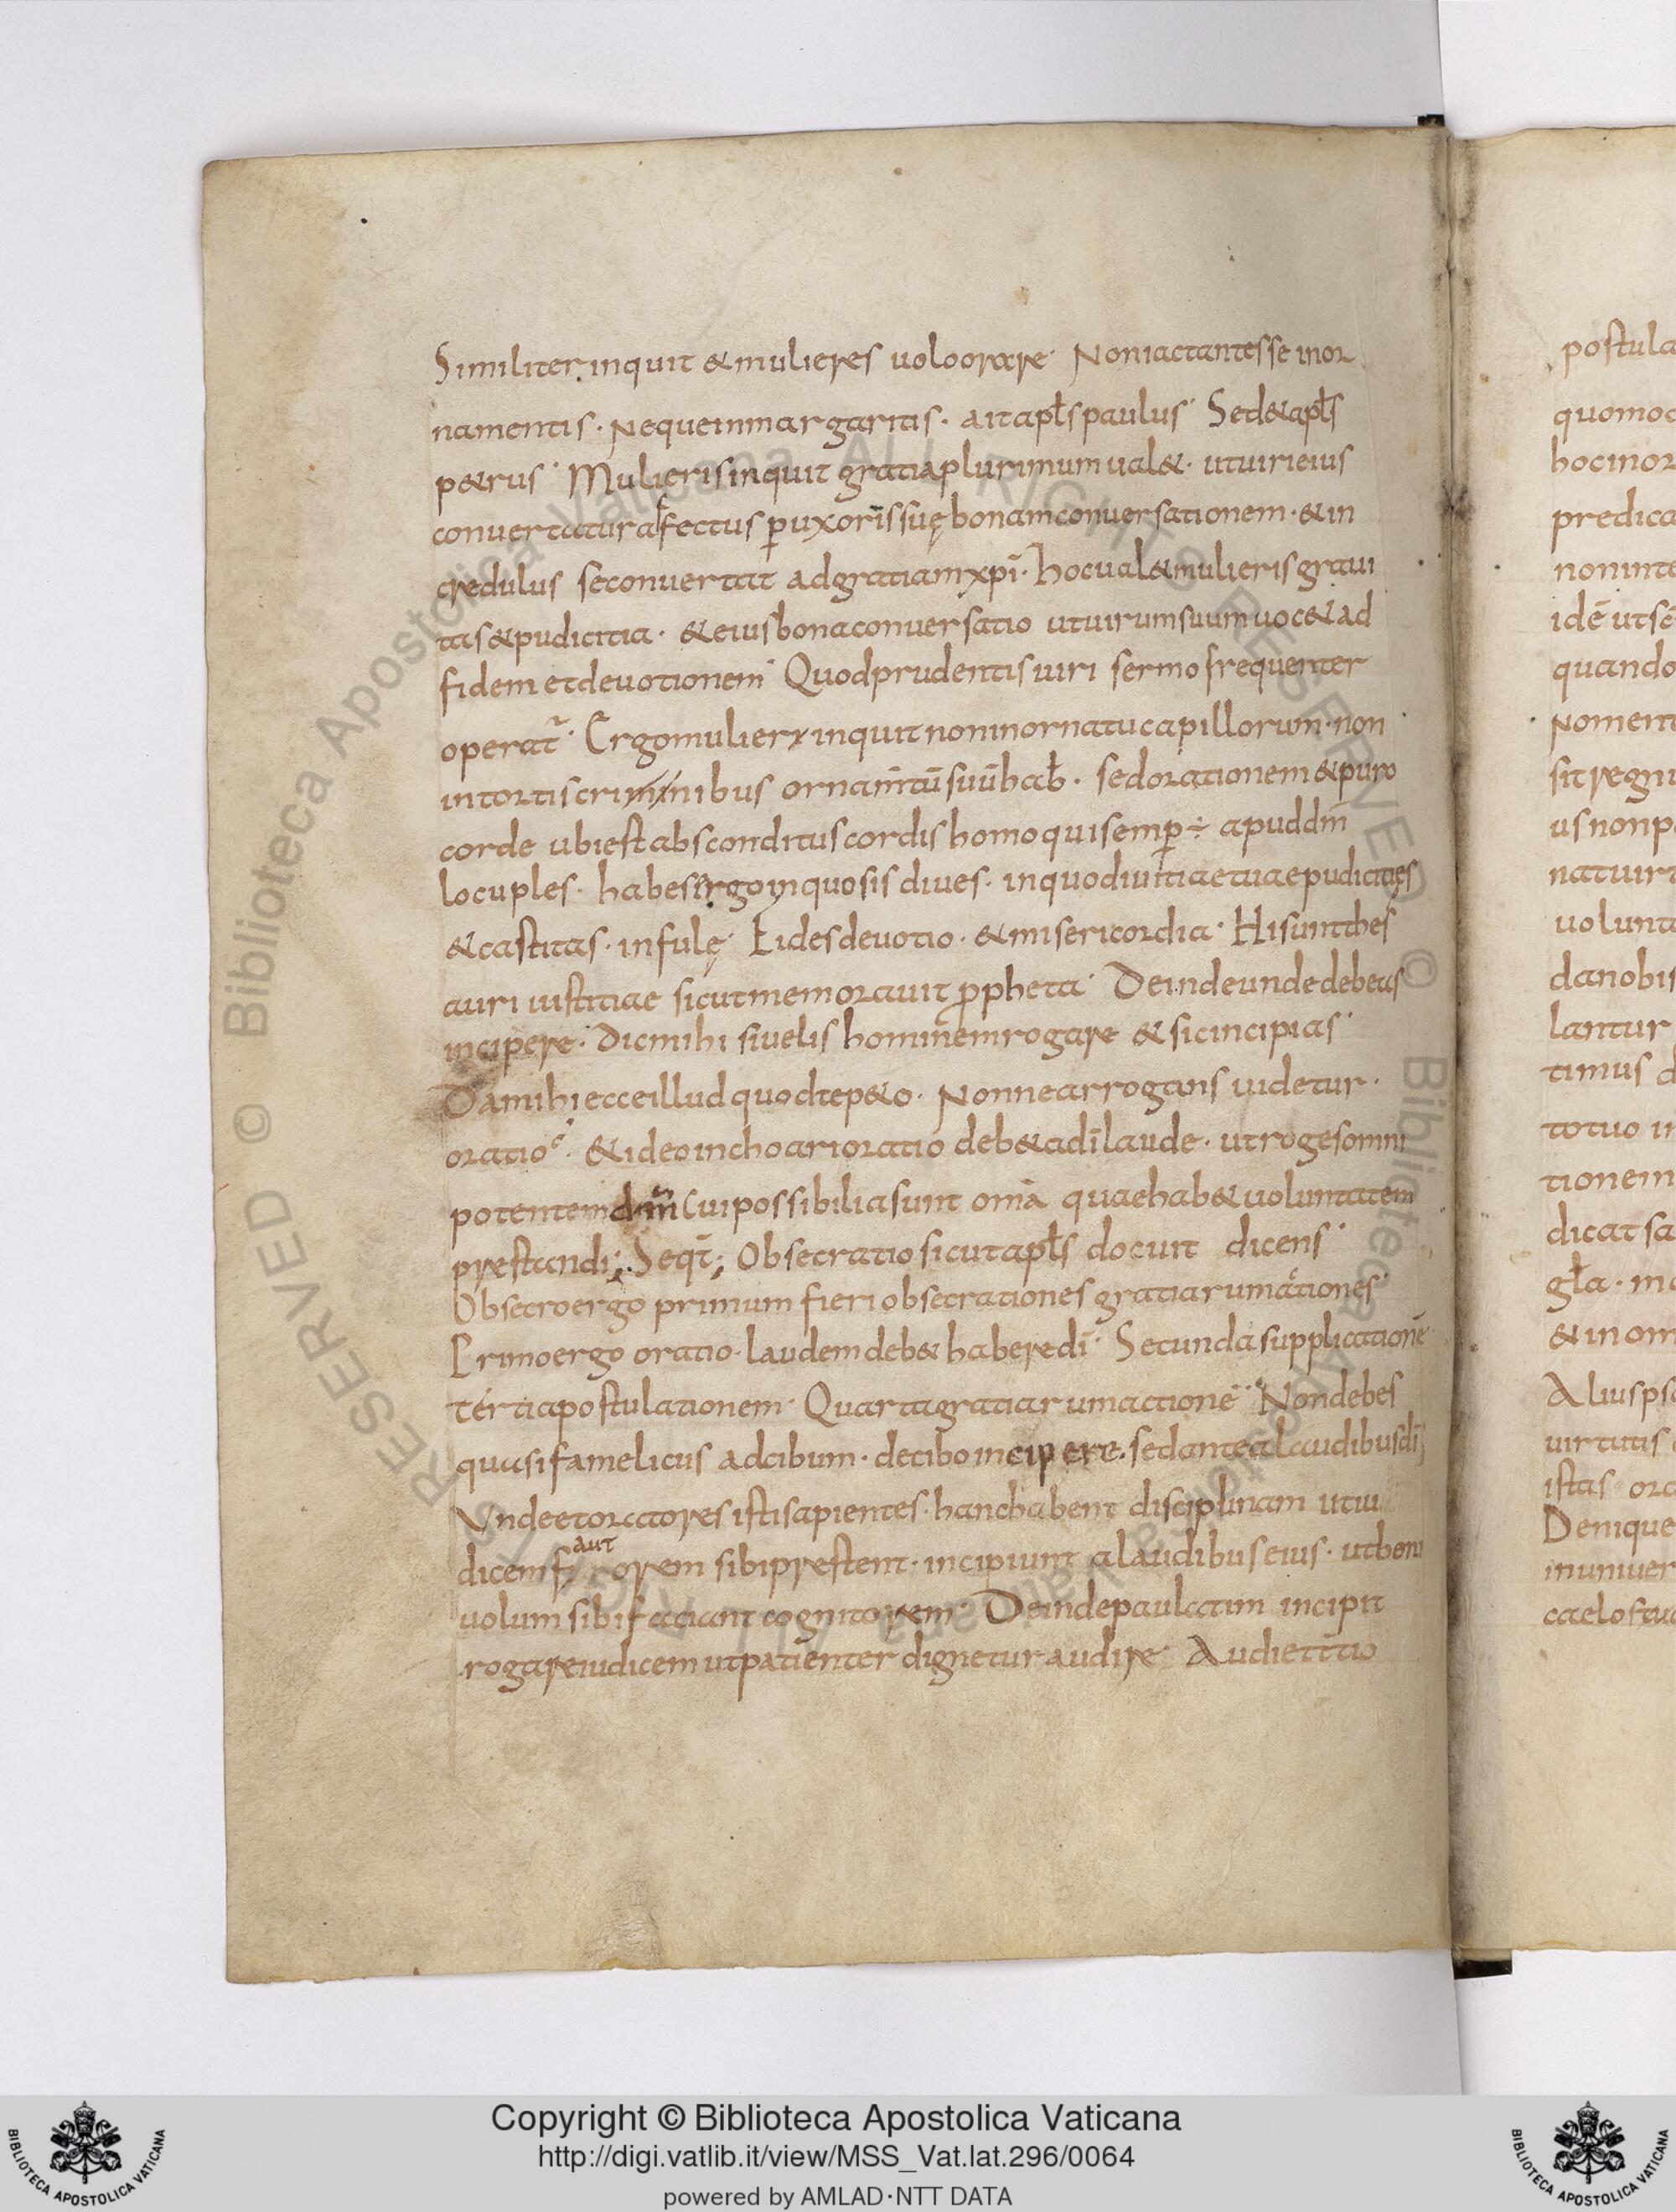 Similiter inquit & mulieres uolo orare· Non iactantes se in or
namentis· Neque in margaritis· ait apłs paulus· Sed & apłs
p&rus· Mulieris inquit gratia plurimum ual&· ut uiri eius
conuertatur affectus p uxoris suę bonam conuersationem· & in
credulus se conuertat ad gratiam xpi· hoc ual& mulieris graui
tas & pudicitia· & eius bona conuersatio ut uirum suum uoc& ad
fidem et deuotionem· Quod prudentis uiri sermo frequenter
operat̄· Ergo mulier inquit non in ornatu capillorum· non
in tortis crinibus ornam̄tū suū hab̄· sed orationem & puro
corde ubi est absconditus cordis homo qui semp ÷ apud dm̄
locuples· habes ergo in quo sis diues· in quo diuitiae tuae pudicities
& castitas· infulę· Fides deuotio· & misericordia· Hi sunt thes
auri iustitiae sicut memorauit ppheta· Deinde unde debeas
incipere· Dic mihi si uelis hominem rogare & sic incipias·
Da mihi ecce illud quod te p&o· Nonne arrogans uidetur·
oratio· & ideo inchoari oratio deb& a dī laude· ut roges omni
potentem dm̄ Cui possibilia sunt om̄a quae hab& uoluntatem
prestandi; Seqt̄; Obsecratio sicut apłs docuit dicens·
Obsecro ergo primum fieri obsecrationes gratiarum actiones·
Primo ergo oratio· laudem deb& habere dī· Secunda supplicationē
tertia postulationem· Quarta gratiarum actionē· Non debes
quasi famelicus ad cibum· de cibo incipere· sed ante a laudibus dī
Unde et oratores isti sapientes· hanc habent disciplinam ut iu
dicem f aut orem sibi prestent· incipiunt a laudibus eius· ut beni
uolum sibi faciant cognitorem· Deinde paulatim incipit
rogare iudicem ut patienter dignetur audire· Audi et tio
postula
quomod
hoc inor
predica
non inte
idē ut sē
quando
Nomen
sit regnu
us non p
natuira
uolunta
da nobis
lantur
timus d
tot uo in
tionem
dicat sa
gła· in
& in om
Alius psa
uirtutis
istas ora
Denique
in uniuer
caelos tu
© Biblioteca Apostolica Vaticana ALL RIGHTS RESERVED © Biblioteca Apostolica Vaticana ALL RIGHTS RESERVED
Copyright © Biblioteca Apostolica Vaticana
http://digi.vatlib.it/view/MSS_Vat.lat.296/0064
powered by AMLAD·NTT DATA
BIBLIOTECA APOSTOLICA VATICANA
BIBLIOTECA APOSTOLICA VATICANA